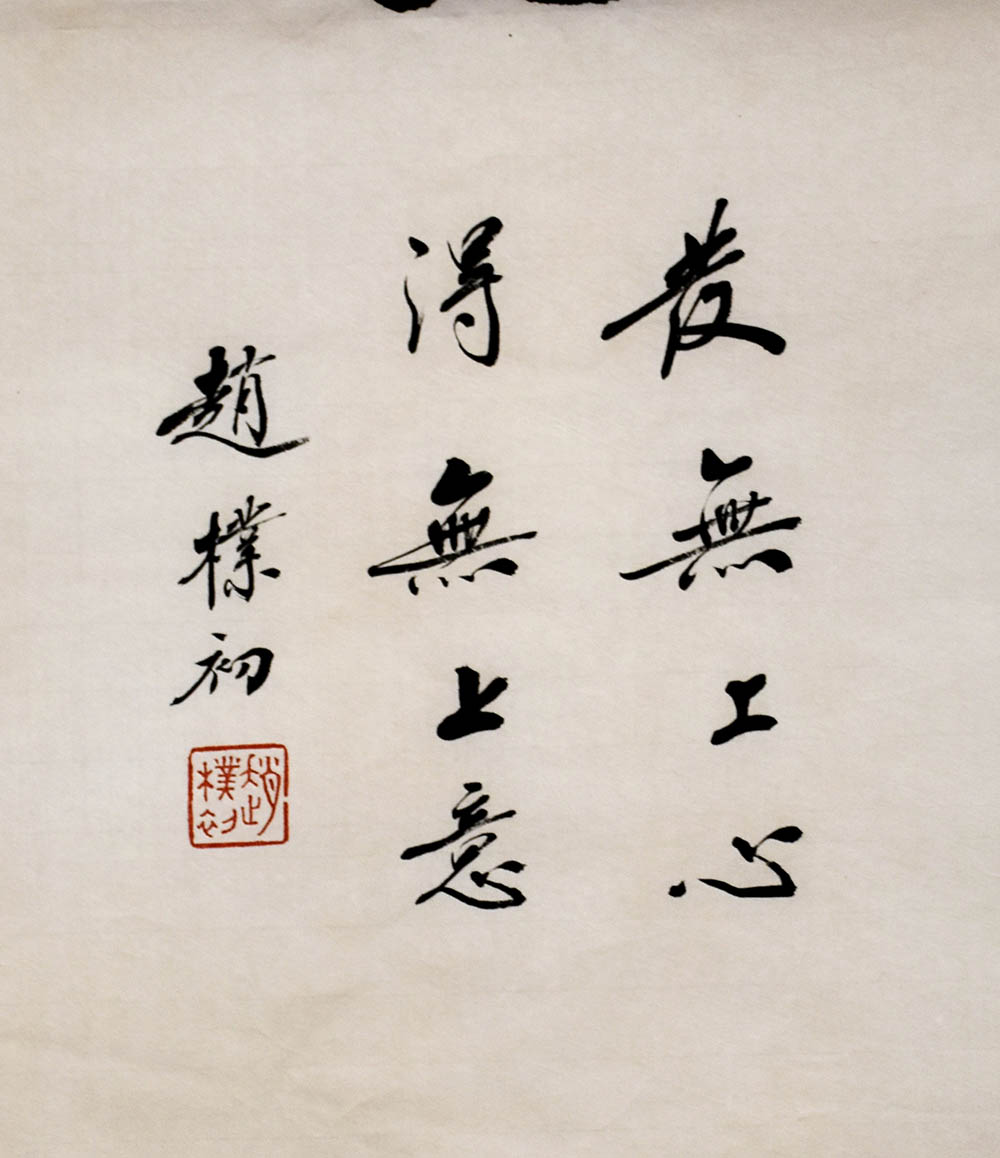 發無上心
得無上意
趙樸初
趙樸初